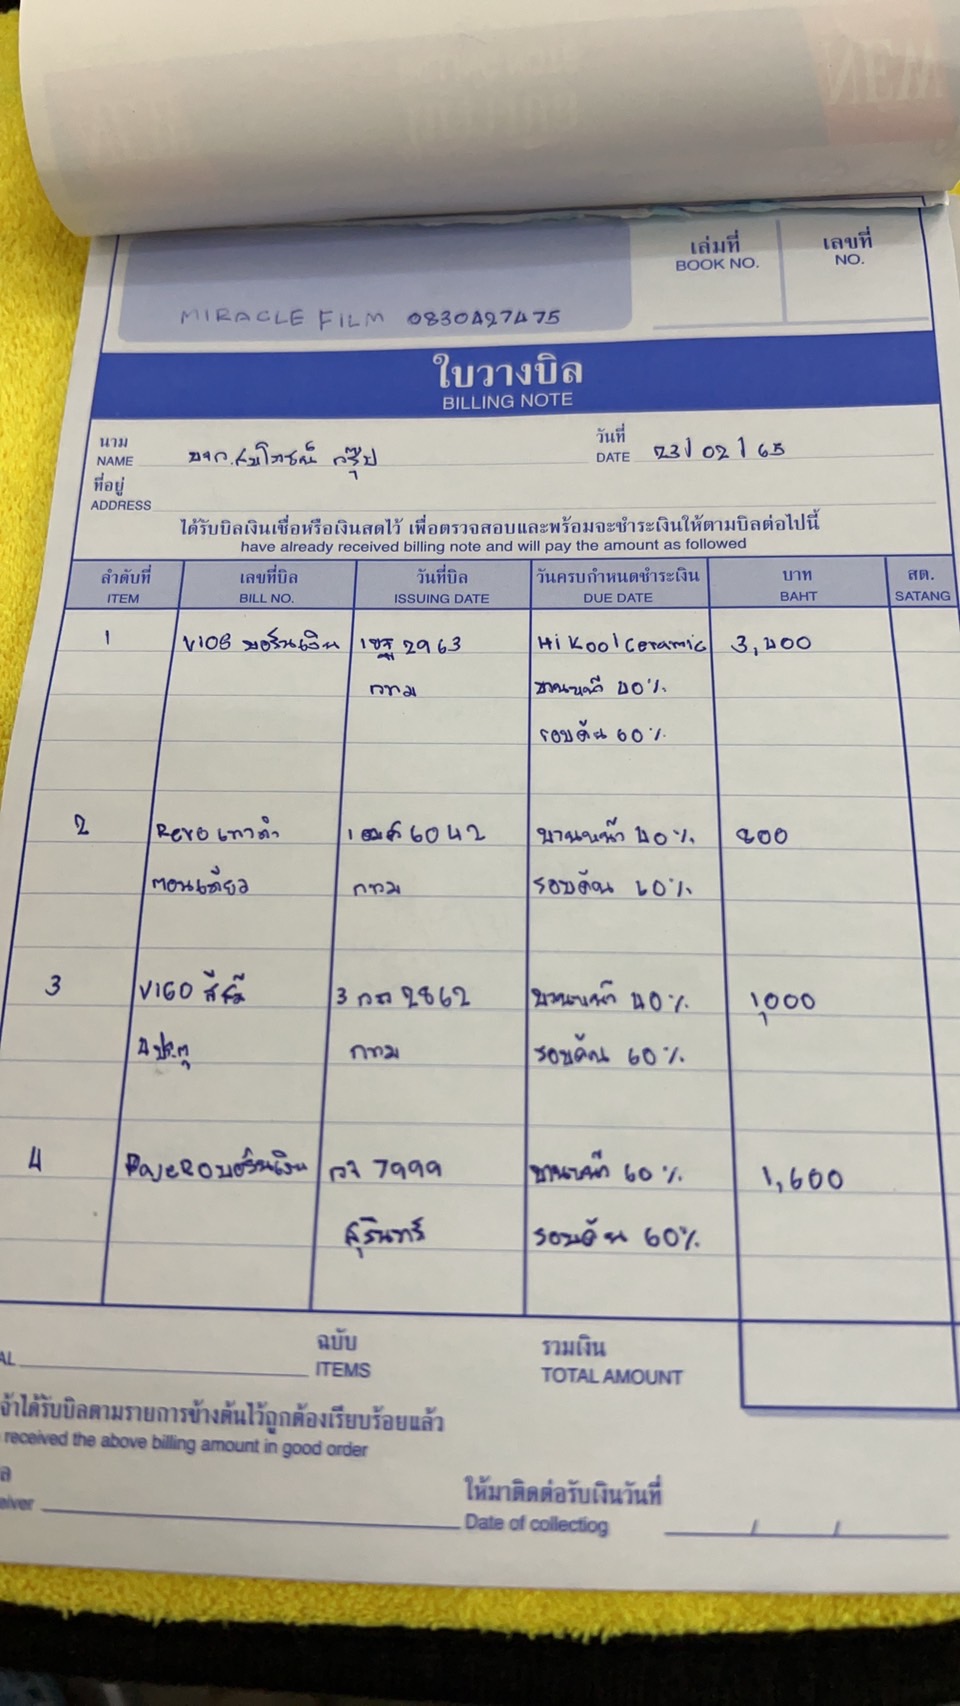 เล่มที่
BOOK NO.
เลขที่
NO.
MIRACLE FILM 0830427475
ใบวางบิล
BILLING NOTE
นาม
NAME
บจก.สมโภชน์ กรุ๊ป
วันที่
DATE
23/02/65
ที่อยู่
ADDRESS
ได้รับบิลเงินเชื่อหรือเงินสดไว้ เพื่อตรวจสอบและพร้อมจะชำระเงินให้ตามบิลต่อไปนี้
have already received billing note and will pay the amount as followed
ลำดับที่ เลขที่บิล วันที่บิล วันครบกำหนดชำระเงิน บาท สต.
ITEM BILL NO. ISSUING DATE DUE DATE BAHT SATANG
1 VIOS บอร์นเงิน 2963 Hi Kool Ceramic 3,400
กทม บานหน้า 40%
รอบคัน 60%
2 Revo เทาดำ 6042 บานหน้า 40% 800
ตอนเดียว กทม รอบคัน 60%
3 VIGO 2862 บานหน้า 40% 1,000
4 ประตู กทม รอบคัน 60%
4 PaJeRO บอร์นเงิน กจ 7999 บานหน้า 60% 1,600
สุรินทร์ รอบคัน 60%
ฉบับ รวมเงิน
ITEMS TOTAL AMOUNT
จ้าได้รับบิลตามรายการข้างต้นไว้ถูกต้องเรียบร้อยแล้ว
received the above billing amount in good order
ให้มาติดต่อรับเงินวันที่
Date of collectiog